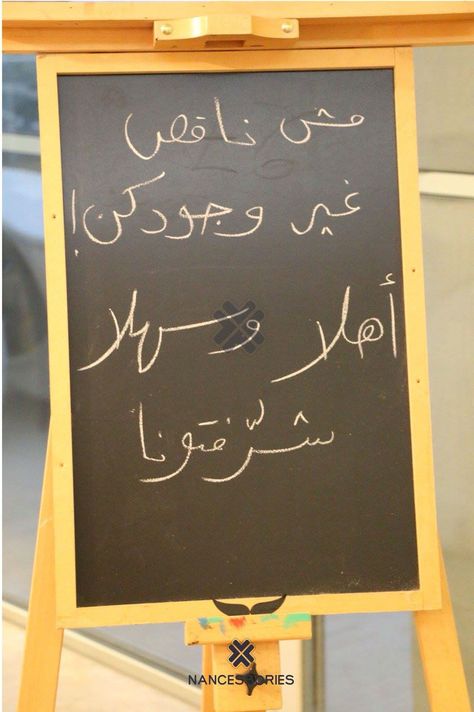 مش ناقص
غير وجودكن!
أهلا وسهلا
شرّفتونا
NANCESSORIES